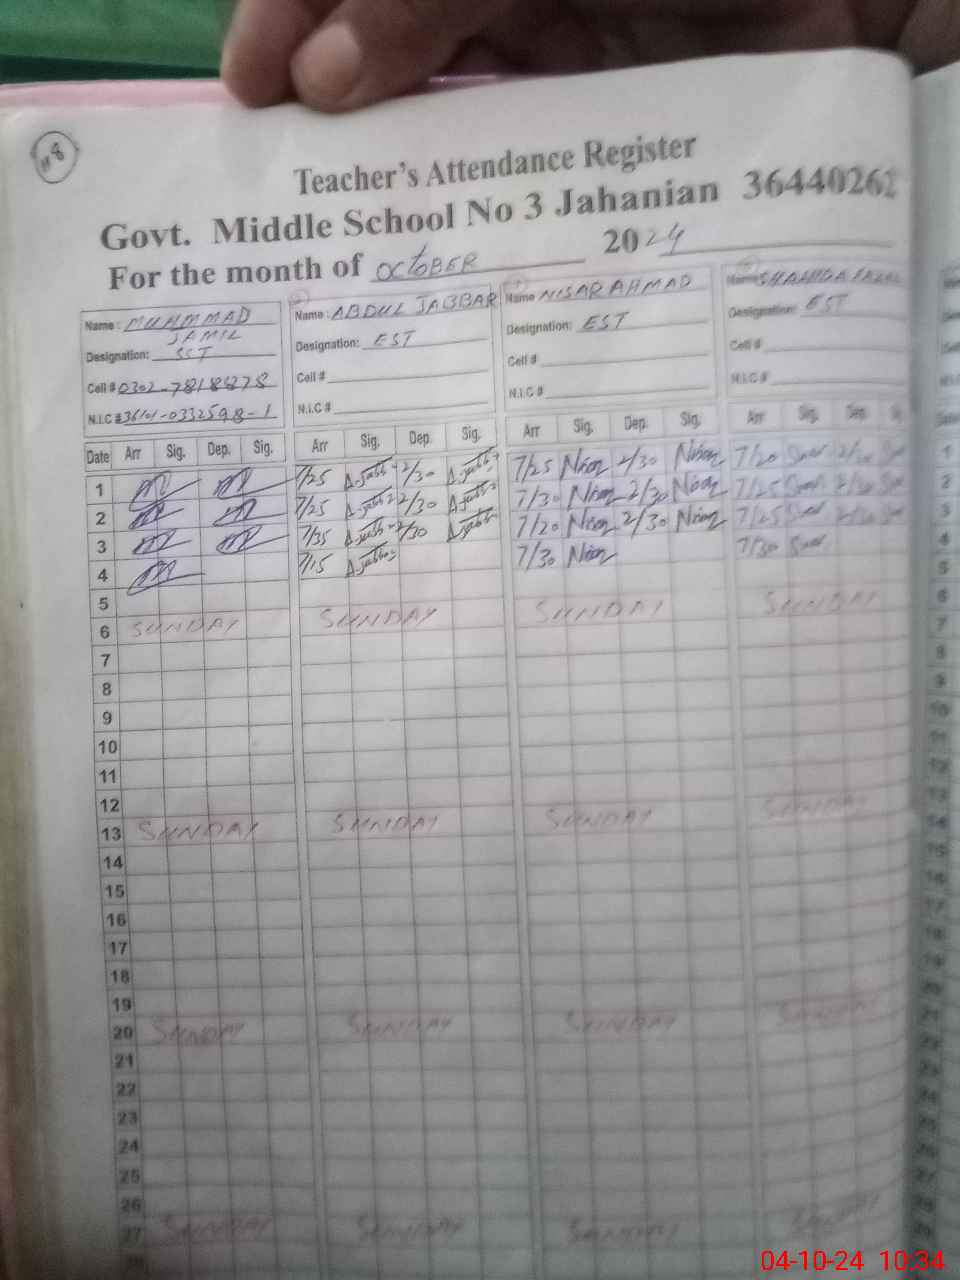 Teacher's Attendance Register
Govt. Middle School No 3 Jahanian 36440262
For the month of OCTOBER 2024
Name: MUHMMAD JAMIL
Designation: SST
Cell #
N.I.C #
Name: ABDUL JABBAR
Designation: EST
Cell #
N.I.C #
Name NISAR AHMAD
Designation: EST
Cell #
N.I.C #
Name SHAHIDA
Designation: EST
Cell #
N.I.C #
Date Arr Sig. Dep. Sig. Arr Sig. Dep. Sig. Arr Sig. Dep. Sig. Arr Sig. Dep.
1 7/25 A.jabbar 2/30 A.jabbar 7/25 Nisar 2/30 Nisar 7/20
2 7/25 A.jabbar 2/30 A.jabbar 7/30 Nisar 2/30 Nisar 7/25
3 7/35 A.jabbar 2/30 A.jabbar 7/20 Nisar 2/30 Nisar 7/25
4 7/15 A.jabbar 7/30 Nisar 7/30
5
6 SUNDAY SUNDAY SUNDAY SUNDAY
7
8
9
10
11
12
13 SUNDAY SUNDAY SUNDAY SUNDAY
14
15
16
17
18
19
20 SUNDAY SUNDAY SUNDAY SUNDAY
21
22
23
24
25
26
27 SUNDAY SUNDAY SUNDAY SUNDAY
04-10-24 10:34